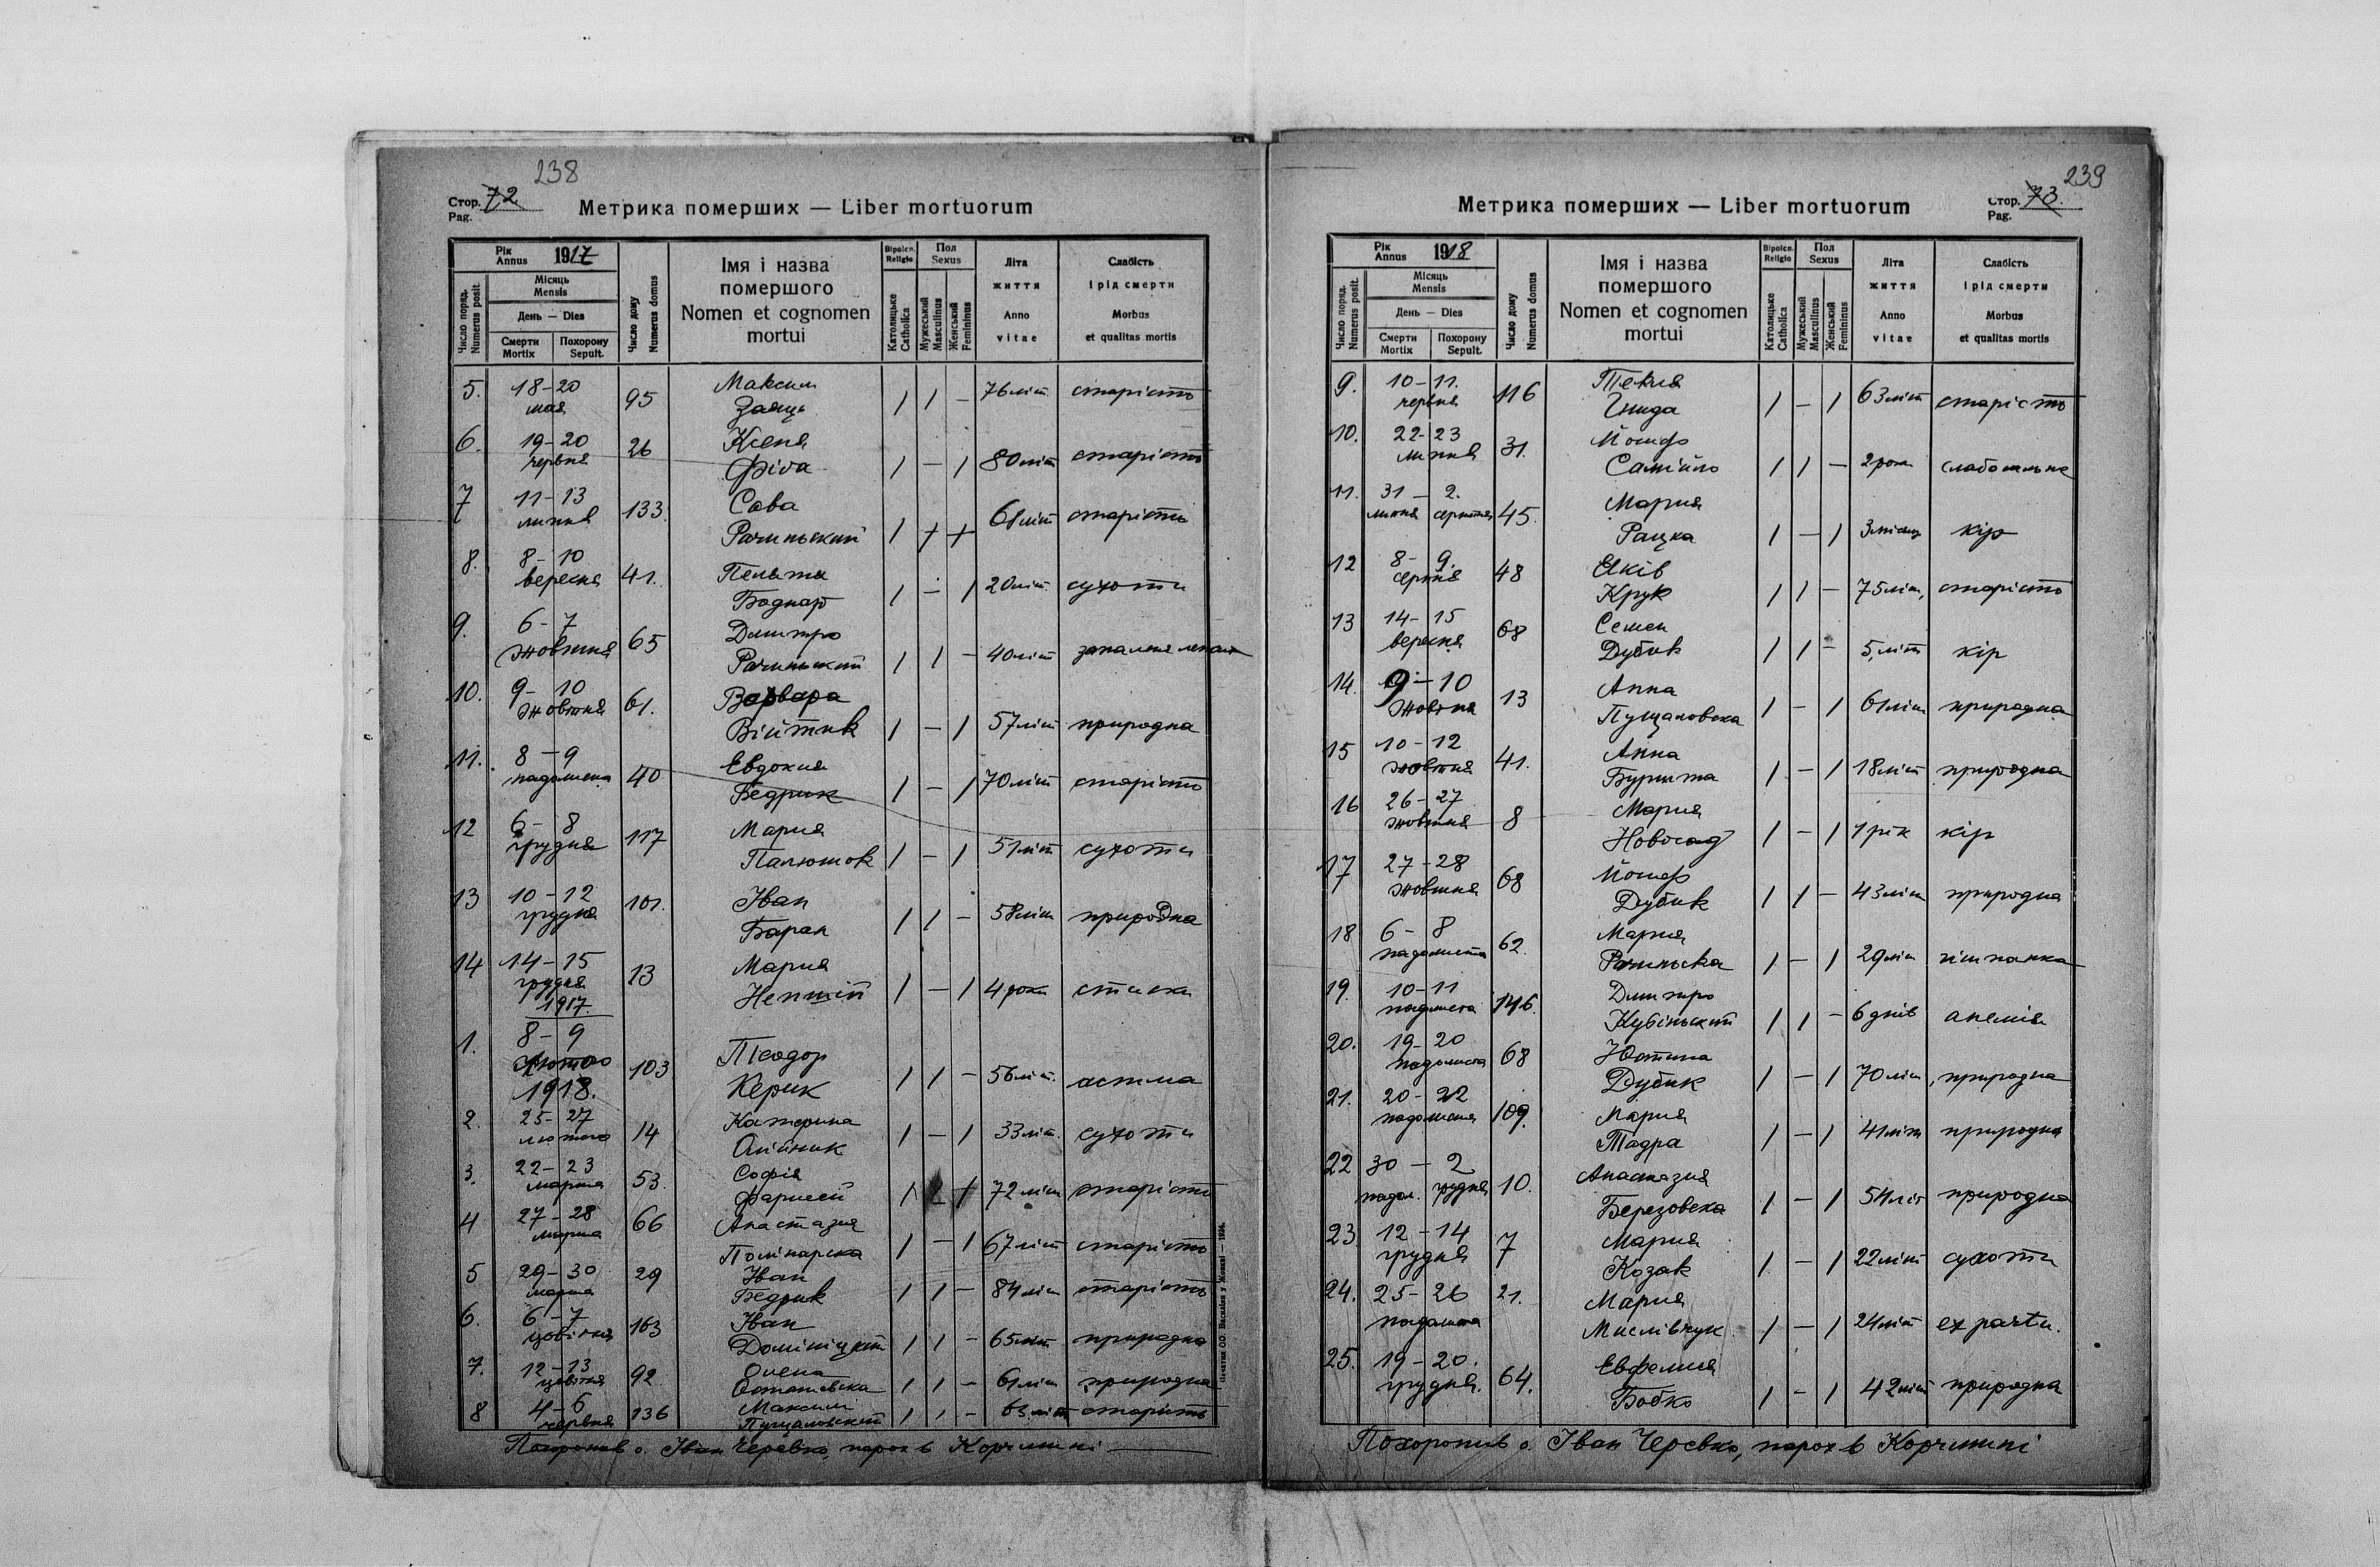 238
Стор. 72
Pag.
Метрика померших — Liber mortuorum
Рік Annus 1917
Місяць Mensis
День — Dies
Смерти Mortix
Похорону Sepult.
Число поряд. Numerus posit.
Число дому Numerus domus
Імя і назва
помершого
Nomen et cognomen
mortui
Віроісп. Religio
Католицьке Catholica
Пол Sexus
Мужеський Masculinus
Женський Femininus
Літа
життя
Anno
vitae
Слабість
і рід смерти
Morbus
et qualitas mortis
5. 18-20 мая 95 Максим Заяць / / — 76 літ старість
6. 19-20 червня 26 Ксеня Фіда / — / 80 літ старість
7 11-13 липня 133. Сава Рачинський / 61 літ старість
8. 8-10 вересня 41. Пелагия Боднар / — / 20 літ сухоти
9. 6-7 жовтня 65 Дмитро Рачинський / / — 40 літ запаленя легких
10. 9-10 жовтня 61. Варвара Війтик / — / 57 літ природна
11. 8-9 падолиста 40 Евдокия Бедрик / — / 70 літ старість
12 6-8 грудня 117 Мария Палюшок / — / 51 літ сухоти
13 10-12 грудня 101. Іван Баран / / — 58 літ природна
14 14-15 грудня 1917. 13 Мария / — / 4 роки
1. 8-9 лютого 1918. 103 Теодор Керик / / — 56 літ. астма
2. 25-27 лютого 14 Катерина Олійник / — / 33 літ. сухоти
3. 22-23 марта 53. Софія Фарисей / / 72 літ старість
4 27-28 марта 66 Анастазия / — / 67 літ старість
5 29-30 марта 29 Іван Бедрик / / — 84 літ старість
6. 6-7 цвітня 163 Іван / / — 65 літ природна
7. 12-13 цвітня 92 Олена Осташевска / / — 61 літ природна
8 4-6 червня 136 Максим Пущаловский / / — 63 літ старість
Похоронив о. Іван Черевко, парох в Корчмині
Печатня ОО. Василіян у Жовкві — 1934.
239
Стор. 73.
Pag.
Метрика померших — Liber mortuorum
Рік Annus 1918
Місяць Mensis
День — Dies
Смерти Mortix
Похорону Sepult.
Число поряд. Numerus posit.
Число дому Numerus domus
Імя і назва
помершого
Nomen et cognomen
mortui
Віроісп. Religio
Католицьке Catholica
Пол Sexus
Мужеський Masculinus
Женський Femininus
Літа
життя
Anno
vitae
Слабість
і рід смерти
Morbus
et qualitas mortis
9. 10-11. червня 116 Текля Гнида / — / 63 літ старість
10. 22-23 липня 31. Йосиф Самійло / / — 2 роки
11. 31 — 2. липня серпня 45. Мария Рацка / — / 3 місяці кір
12 8-9. серпня 48 Яків Крук / / — 75 літ, старість
13 14-15 вересня 68 Семен Дубик / / — 5 літ кір
14. 9-10 жовтня 13 Анна Пущаловска / — / 61 літ природна
15 10-12 жовтня 41. Анна / — / 18 літ природна
16 26-27 жовтня 8 Мария Новосад / — / 1 рік кір
17 27-28 жовтня 68 Йосиф Дубик / / — 43 літ природна
18 6-8 падолиста 62. Мария Рачинська / — / 29 літ гішпанка
19. 10-11 падолиста 146. Дмитро Кубінський / / — 6 днів анемія
20. 19-20 падолиста 68 Юстина Дубик / — / 70 літ, природна
21. 20-22 падолиста 109. Мария Тадра / — / 41 літ природна
22 30 — 2 падол. грудня 10. Анастазия Березовска / — / 54 літ природна
23. 12-14 грудня 7 Мария Козак / — / 22 літ сухоти
24. 25-26 падолиста 21. Мария Мислівчук / — / 24 літ ex partu.
25. 19-20. грудня. 64. Евфемия Бобко / — / 42 літ природна
Похоронив о. Іван Черевко, парох в Корчмині